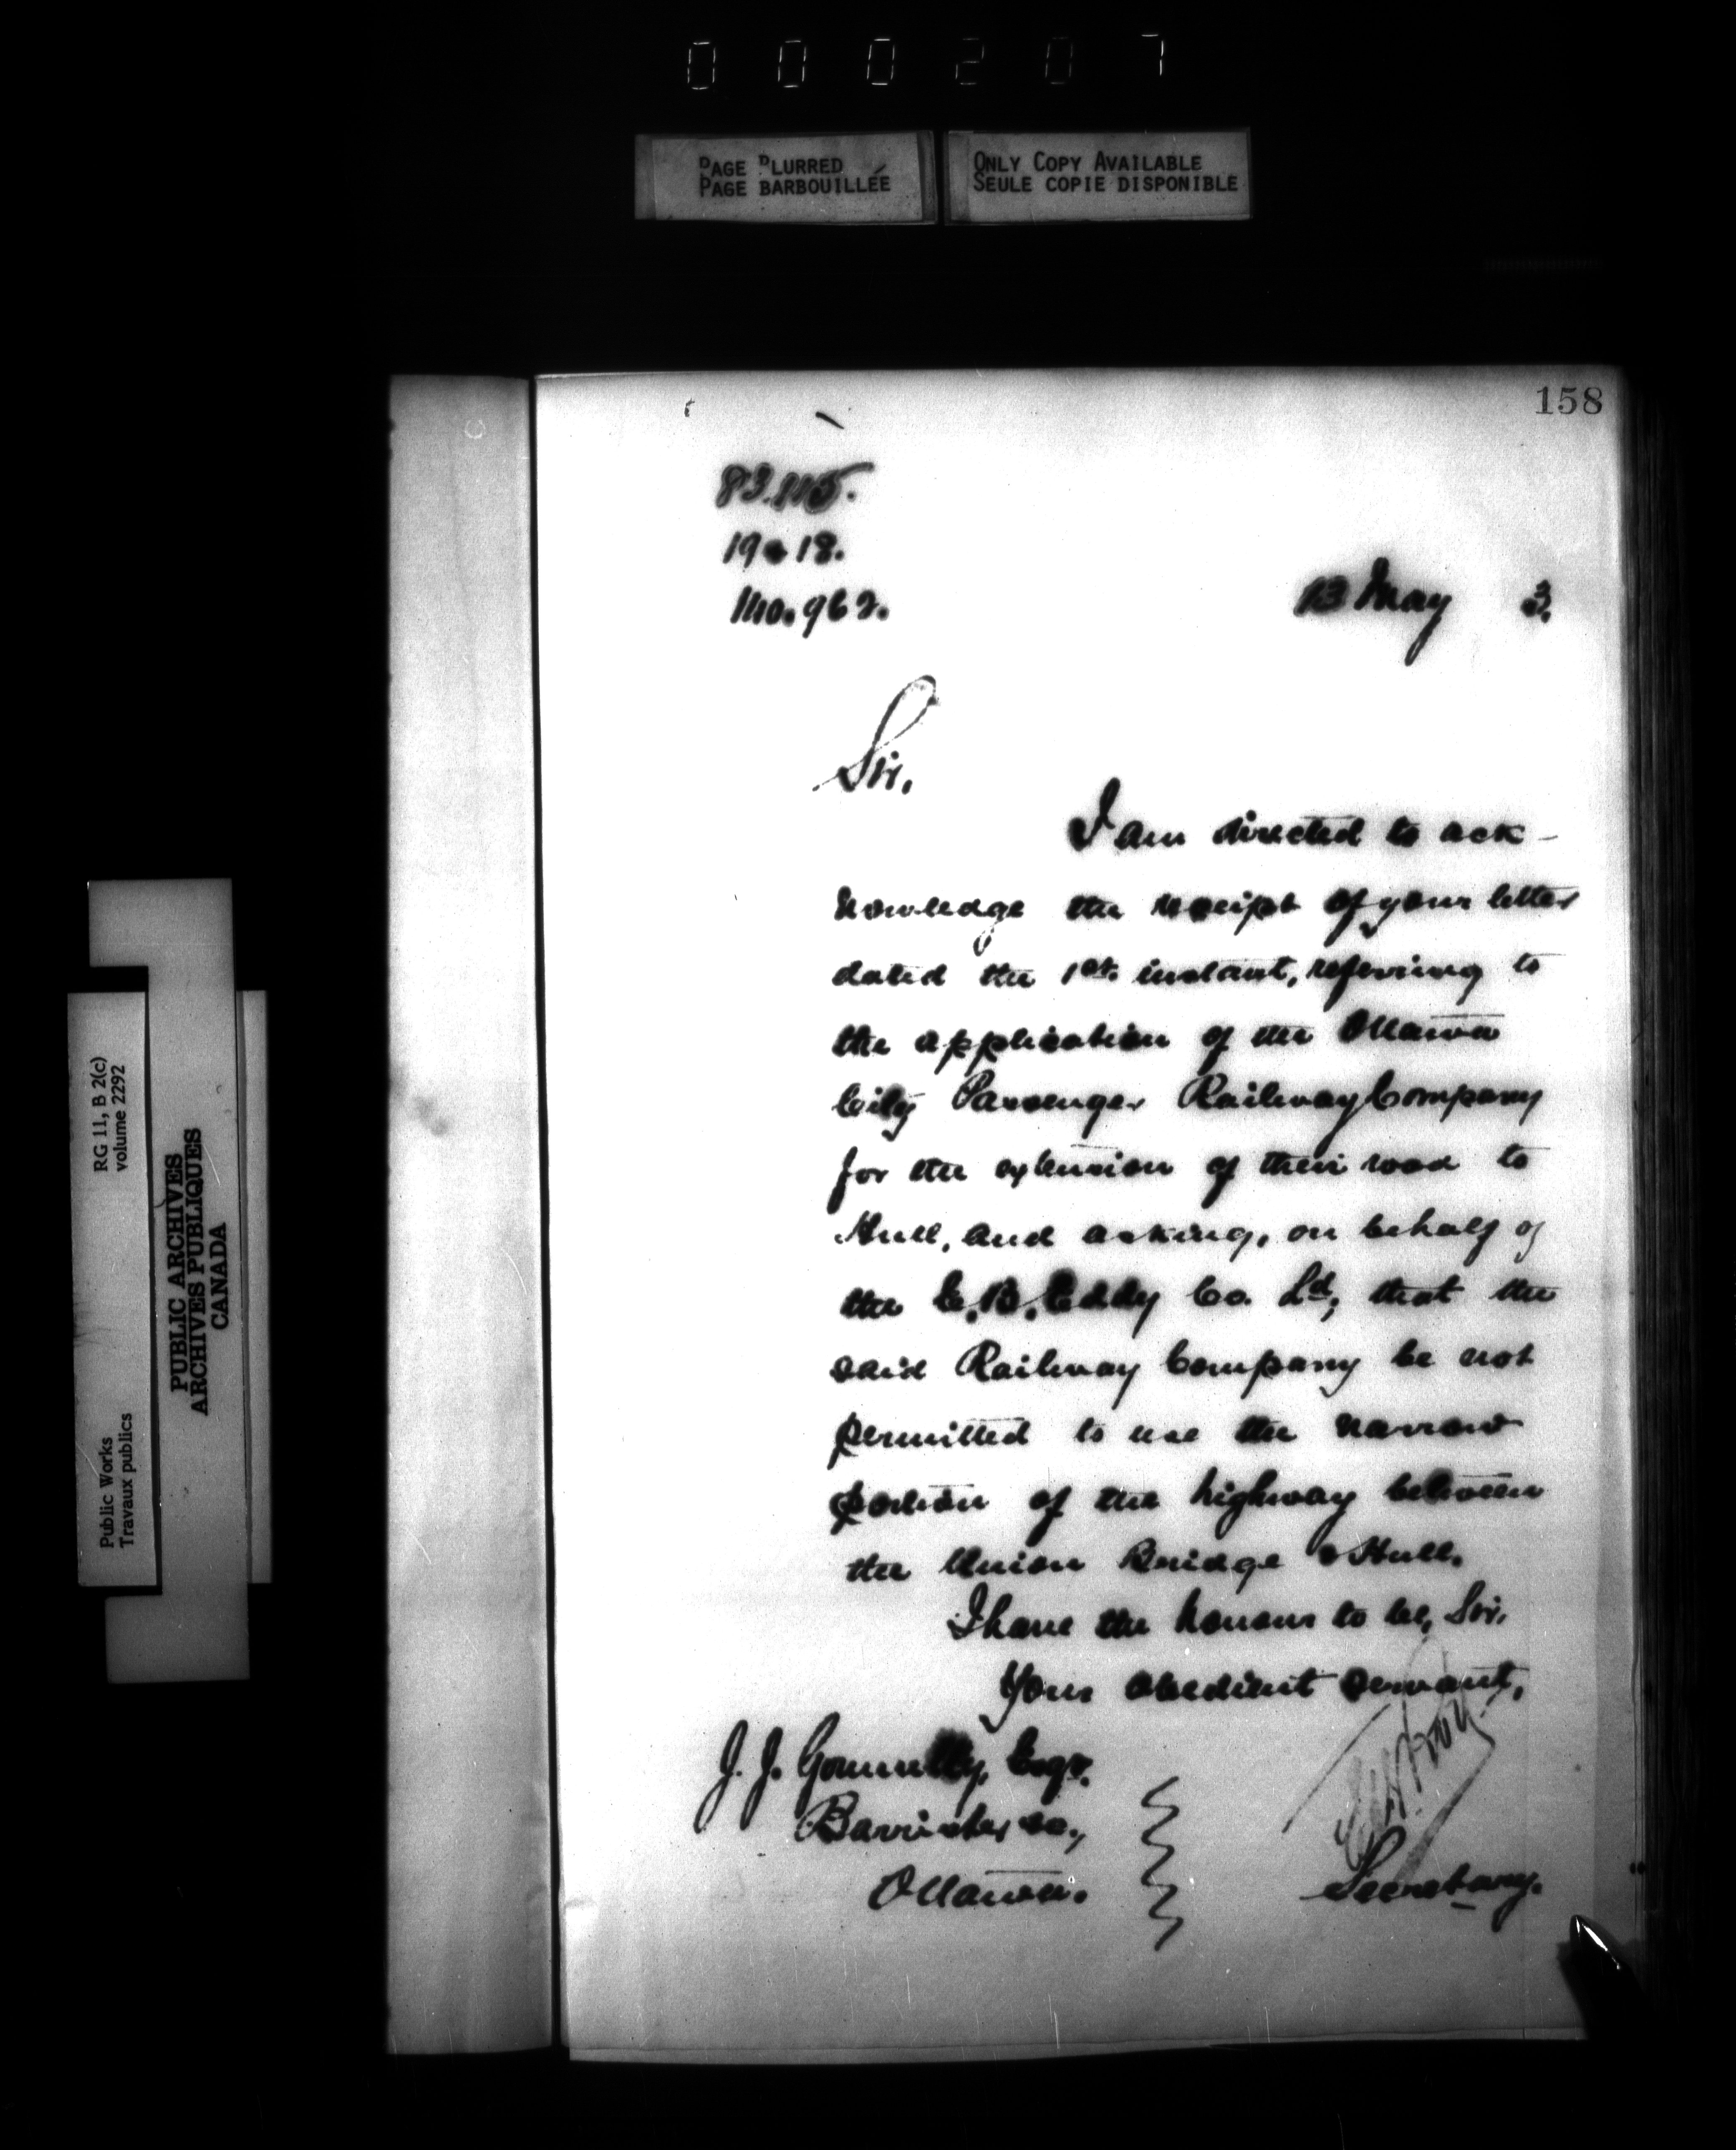 0 0 0 2 0 7
PAGE BLURRED
PAGE BARBOUILLÉE
ONLY COPY AVAILABLE
SEULE COPIE DISPONIBLE
158
19 18.
140.962.
13 May 3.
Sir,
I am directed to ack-
nowledge the receipt of your letter
dated the 1st. instant, referring to
the application of the Ottawa
City Passenger Railway Company
for the extension of their road to
Hull, and asking, on behalf of
the E.B. Eddy Co. Ld, that the
said Railway Company be not
permitted to use the narrow
portion of the highway between
the Union Bridge & Hull.
I have the honour to be, Sir,
Your obedient servant,
J. J. Esqr.
Barrister &c.,
Ottawa.
Secretary.
RG 11, B 2(c)
volume 2292
PUBLIC ARCHIVES
ARCHIVES PUBLIQUES
CANADA
Public Works
Travaux publics